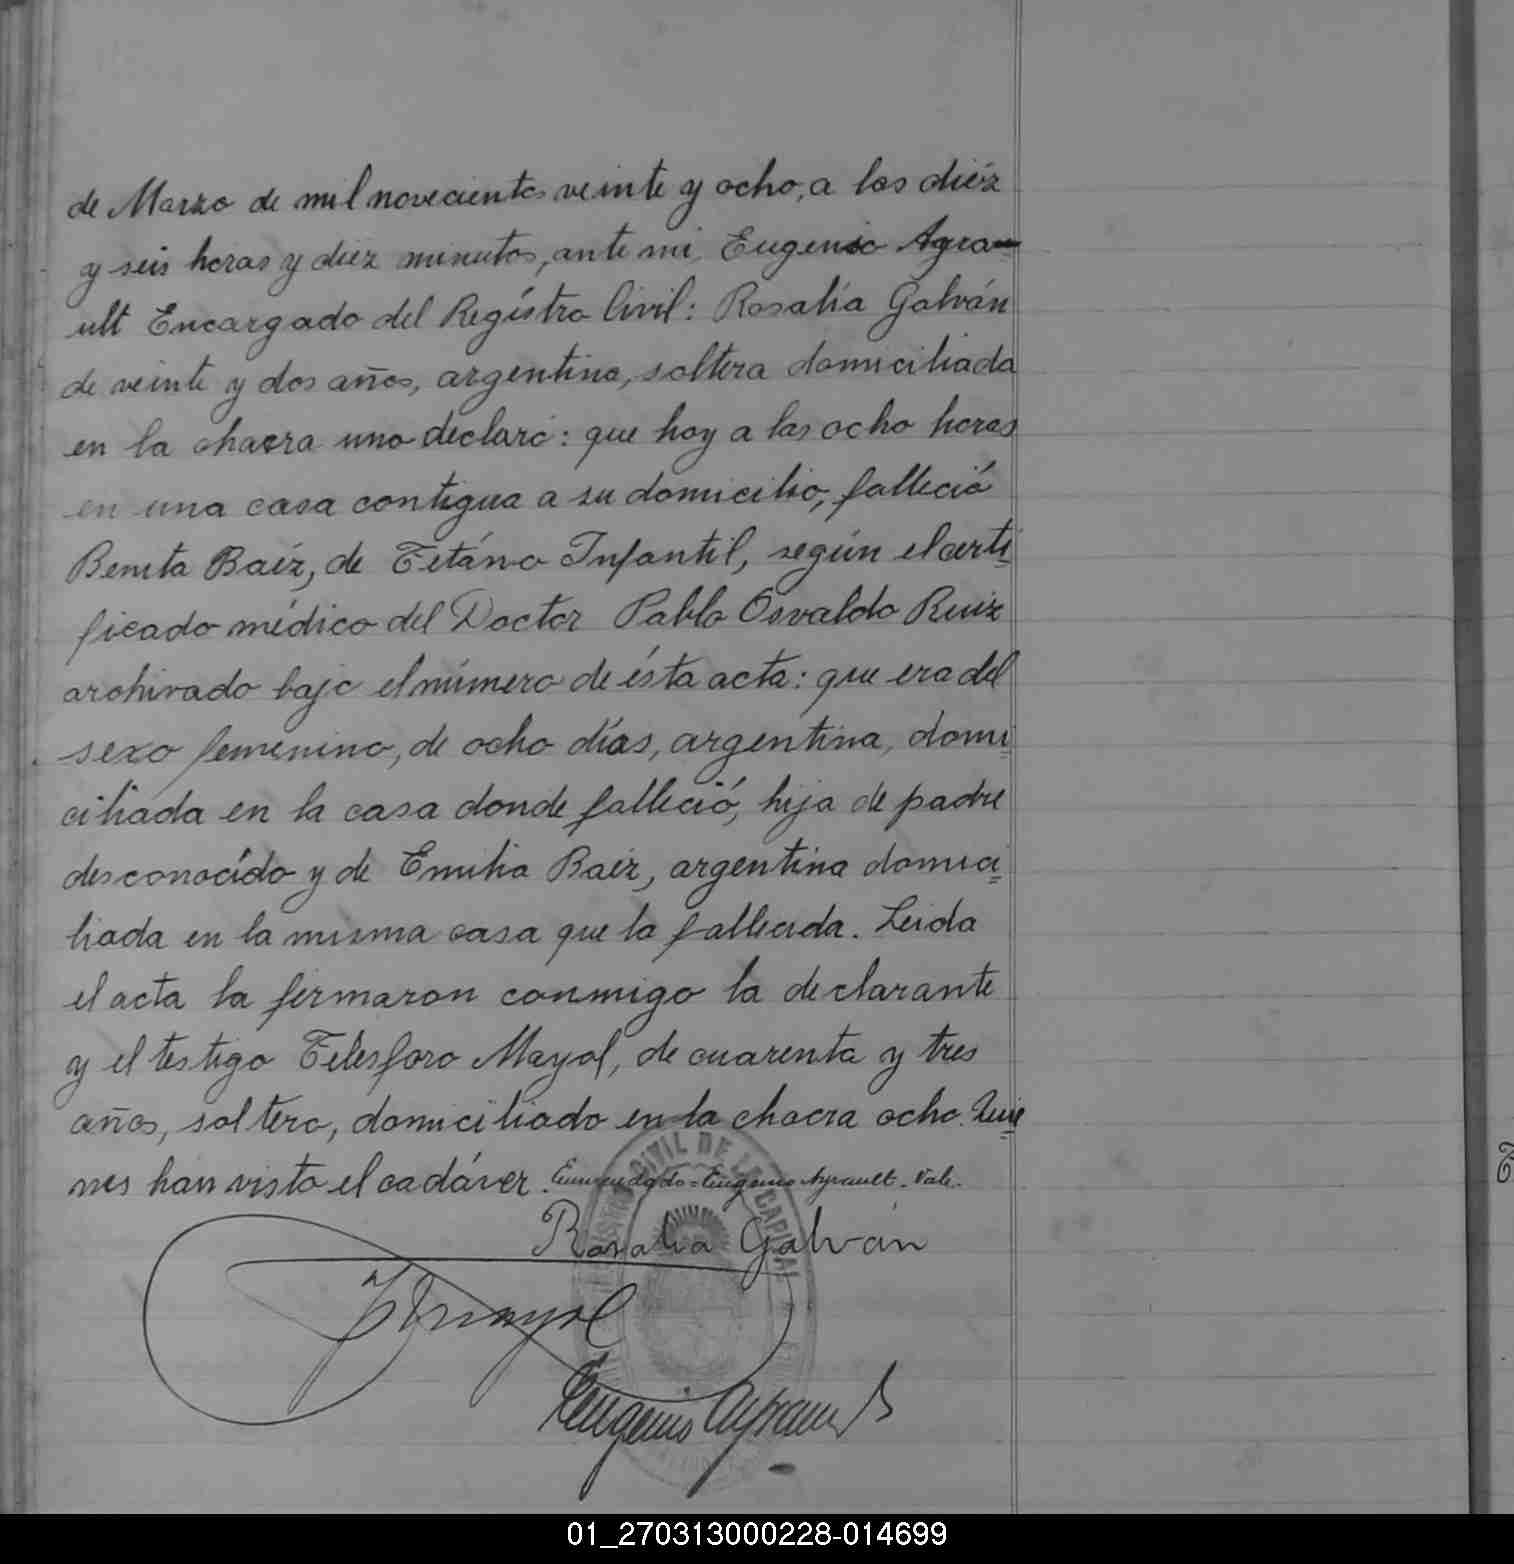 de Marzo de mil novecientos veinte y ocho, a las diéz
y seis horas y diez minutos, ante mi, Eugenio Ayra-
ult Encargado del Registro Civil: Rosalía Galván
de veinte y dos años, argentina, soltera domiciliada
en la chacra uno declaró: que hoy a las ocho horas
en una casa contigua a su domicilio, falleció
Benita Baéz, de Tetáno Infantil, según el certi
ficado médico del Doctor Pablo Osvaldo Ruiz
archivado bajo el número de ésta acta: que era del
sexo femenino, de ocho días, argentina, domi
ciliada en la casa donde falleció, hija de padre
desconocído y de Emilia Baéz, argentina domici
liada en la misma casa que la fallecida. Leida
el acta la firmaron conmigo la declarante
y el testigo Telesforo Mayol, de cuarenta y tres
años, soltero, domiciliado en la chacra ocho. Quie
nes han visto el cadáver. Enmendado=Eugenio Ayrault. Vale.
Rosalia Galván
TMayol
Eugenio Ayrault
CIVIL DE LA CAPITAL
01_270313000228-014699